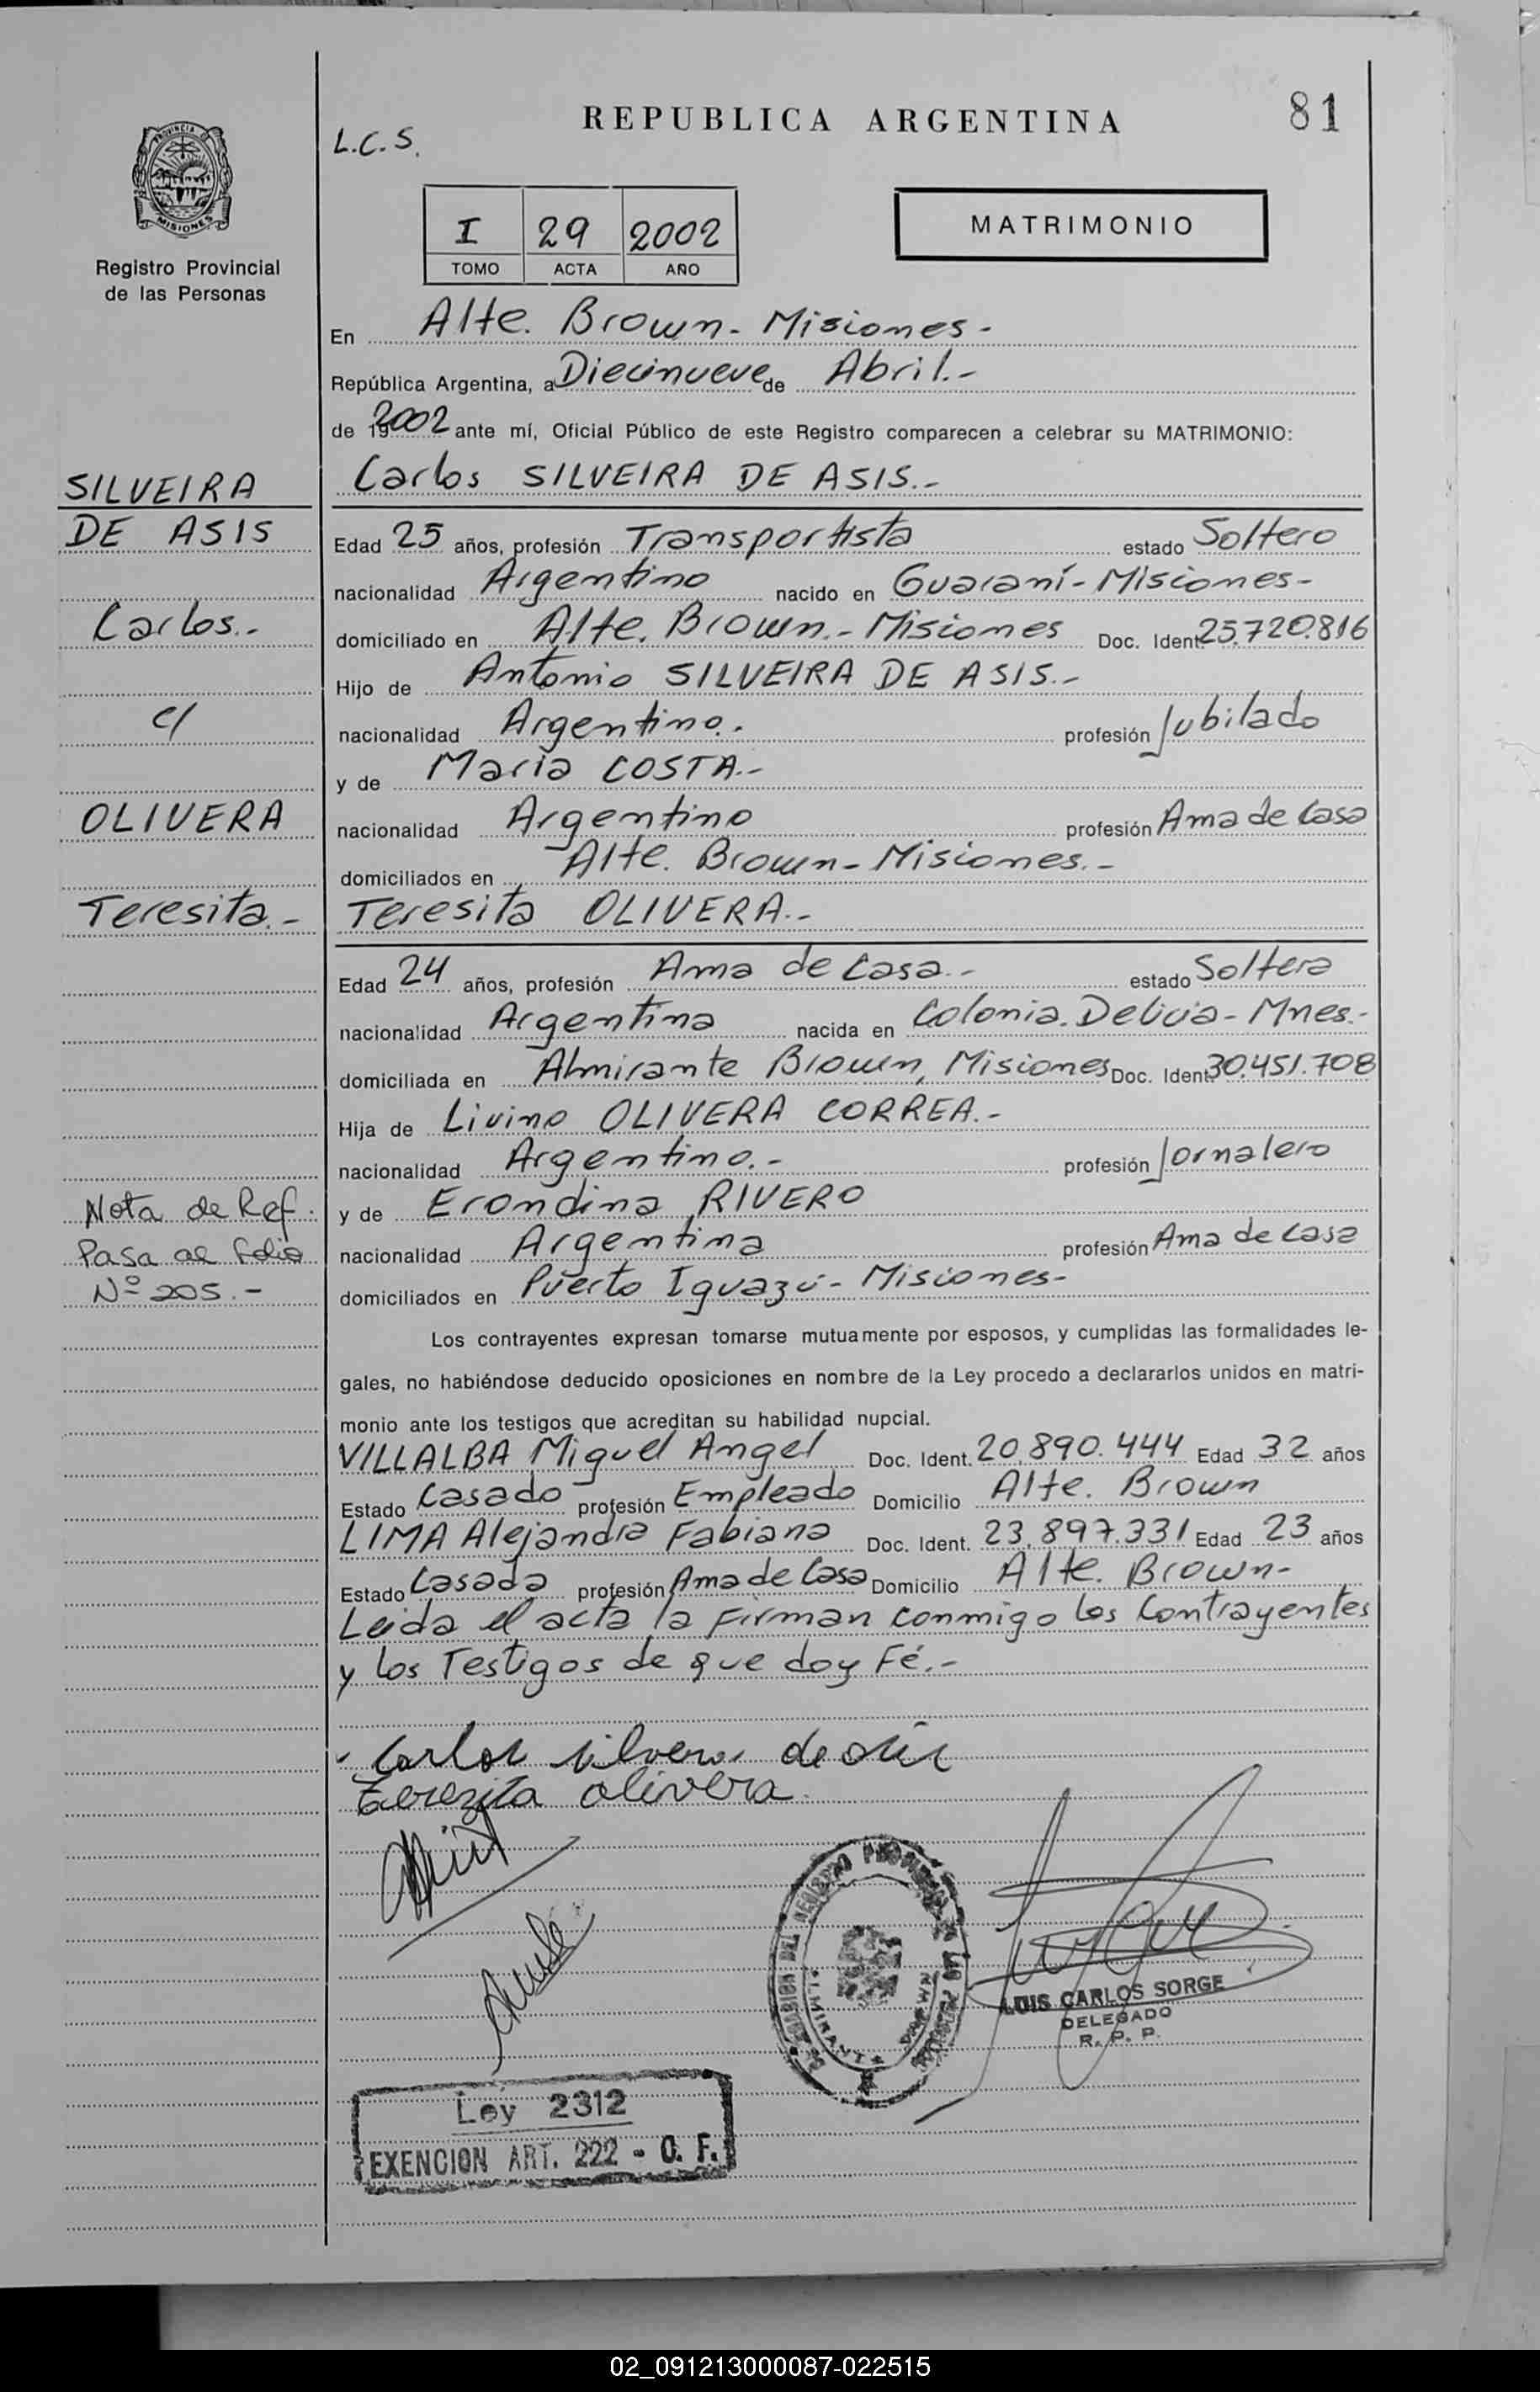 REPUBLICA ARGENTINA
81
L.C.S.
PROVINCIA
MISIONES
Registro Provincial
de las Personas
I 29 2002
TOMO ACTA AÑO
MATRIMONIO
En Alte. Brown - Misiones -
República Argentina, a Diecinueve de Abril.-
de 19 2002 ante mí, Oficial Público de este Registro comparecen a celebrar su MATRIMONIO:
SILVEIRA
DE ASIS
Carlos.-
c/
OLIVERA
Teresita.-
Nota de Ref.
Pasa al folio
Nº 205.-
Carlos SILVEIRA DE ASIS.-
Edad 25 años, profesión Transportista estado Soltero
nacionalidad Argentino nacido en Guaraní - Misiones -
domiciliado en Alte. Brown.- Misiones Doc. Ident. 25.720.816
Hijo de Antonio SILVEIRA DE ASIS.-
nacionalidad Argentino.- profesión Jubilado
y de Maria COSTA.-
nacionalidad Argentino profesión Ama de Casa
domiciliados en Alte. Brown - Misiones.-
Teresita OLIVERA.-
Edad 24 años, profesión Ama de Casa.- estado Soltera
nacionalidad Argentina nacida en Colonia Delicia - Mnes.-
domiciliada en Almirante Brown, Misiones Doc. Ident. 30.451.708
Hija de Livino OLIVERA CORREA.-
nacionalidad Argentino.- profesión Jornalero
y de Erondina RIVERO
nacionalidad Argentina profesión Ama de Casa
domiciliados en Puerto Iguazú - Misiones-
Los contrayentes expresan tomarse mutuamente por esposos, y cumplidas las formalidades le-
gales, no habiéndose deducido oposiciones en nombre de la Ley procedo a declararlos unidos en matri-
monio ante los testigos que acreditan su habilidad nupcial.
VILLALBA Miguel Angel Doc. Ident. 20.890.444 Edad 32 años
Estado Casado profesión Empleado Domicilio Alte. Brown
LIMA Alejandra Fabiana Doc. Ident. 23.897.331 Edad 23 años
Estado Casada profesión Ama de Casa Domicilio Alte. Brown-
Leida el acta la Firman conmigo los Contrayentes
y los Testigos de que doy Fé.-
Carlos silveira de asis
Terezita olivera
LUIS CARLOS SORGE
DELEGADO
R. P. P.
Ley 2312
EXENCION ART. 222 - O. F.
02_091213000087-022515